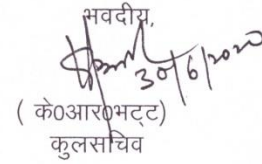 भवदीय,
30/6/2020
( के0आर0भट्ट)
कुलसचिव